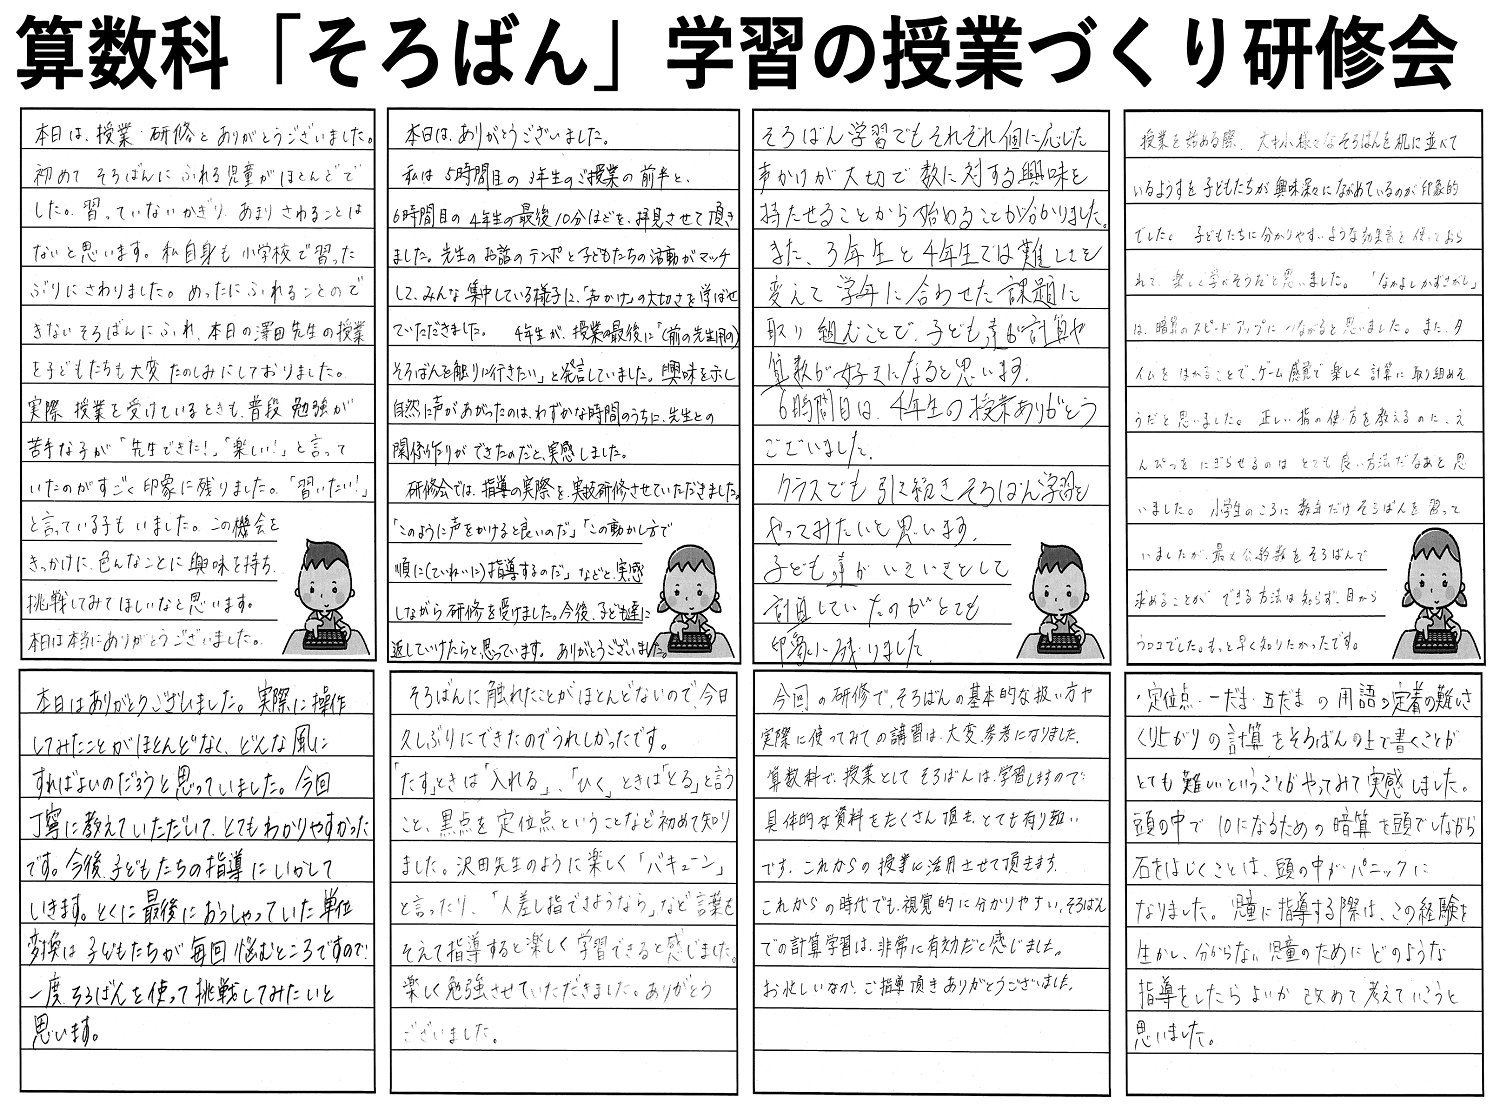 算数科「そろばん」学習の授業づくり研修会
本日は、授業・研修とありがとうございました。
初めて そろばんに ふれる児童がほとんどで
した。習っていないかぎり、あまり さわることは
ないと思います。私自身も 小学校で習った
ぶりにさわりました。めったにふれることので
きないそろばんにふれ、本日の澤田先生の授業
を子どもたちも大変 たのしみにしておりました。
実際 授業を受けているときも、普段 勉強が
苦手な子が「先生できた!」「楽しい!」と言って
いたのがすごく印象に残りました。「習いたい!」
と言っている子も いました。この機会を
きっかけに、色んなことに興味を持ち、
挑戦してみてほしいなと思います。
本日は本当にありがとうございました。
本日は、ありがとうございました。
私は 5時間目の 3年生のご授業の 前半と、
6時間目の 4年生の最後 10分ほどを、拝見させて頂き
ました。先生の お話の テンポと子どもたちの活動がマッチ
して、みんな 集中している様子に、「声かけ」の大切さを学ばせ
ていただきました。 4年生が、授業の最後に「(前の先生用の)
そろばんを触りに行きたい」と発言していました。興味を示し
自然に声があがったのは、わずかな時間のうちに、先生との
関係作りが できたのだと、実感しました。
研修会では、指導の実際を、実技研修させていただきました。
「このように声をかけると良いのだ」「この動かし方で
順に(ていねいに)指導するのだ」などと、実感
しながら 研修を受けました。今後、子ども達に
返していけたらと、思っています。ありがとうございました。
そろばん学習でもそれぞれ個に応じた
声かけが大切で 数に対する興味を
持たせることから始めることが分かりました。
また、3年生と4年生では難しさを
変えて 学年に合わせた課題に
取り組むことで、子ども達が計算や
算数が好きになると思います。
6時間目は、4年生の授業ありがとう
ございました。
クラスでも 引き続き そろばん学習を
やってみたいと思います。
子ども達が いきいきとして
計算していたのがとても
印象に残りました。
授業を始める際、大小様々なそろばんを机に並べて
いるようすを 子どもたちが 興味深々にながめているのが印象的
でした。 子どもたちに分かりやすいような効果音を使っておら
れて、楽しく学べそうだと思いました。「なかよしかずさがし」
は、暗算のスピードアップに つながると思いました。また、タ
イムを はかることで、ゲーム感覚で楽しく計算に取り組めそ
うだと思いました。 正しい指の使い方を教えるのに、え
んぴつを にぎらせるのは とても 良い方法だなあと 思
いました。 小学生のころに数年だけそろばんを 習って
いましたが、最大公約数をそろばんで
求めることが できる方法は知らず、目から
ウロコでした。もっと早く知りたかったです。
本日はありがとうございました。実際に操作
してみたことがほとんどなく、どんな風に
すればよいのだろうと思っていました。今回
丁寧に教えていただいて、とてもわかりやすかった
です。今後、子どもたちの指導にいかして
いきます。とくに最後におっしゃっていた単位
変換は子どもたちが毎回悩むところですので、
一度、そろばんを使って挑戦してみたいと
思います。
そろばんに触れたことがほとんどないので、今日
久しぶりにできたのでうれしかったです。
「たす」ときは「入れる」、「ひく」ときは「とる」と言う
こと、黒点を定位点ということなど初めて知り
ました。沢田先生のように楽しく「バキューン」
と言ったり、「人差し指でさようなら」など言葉を
そえて指導すると楽しく学習できると感じました。
楽しく勉強させていただきました。ありがとう
ございました。
今回の研修で、そろばんの基本的な扱い方や
実際に使ってみての講習は、大変、参考になりました。
算数科で、授業として そろばんは、学習しますので
具体的な資料をたくさん頂き、とても有り難い
です。これからの授業に活用させて頂きます。
これからの時代でも、視覚的に分かりやすい、そろばん
での計算学習は、非常に有効だと感じました。
お忙しいなか、ご指導頂きありがとうございました。
・定位点・一だま・五だま の 用語の定着の難しさ
くり上がりの計算をそろばんの上で書くことが
とても難しいということがやってみて実感しました。
頭の中で 10になるための暗算を頭でしながら
石をはじくことは、頭の中がパニックに
なりました。児童に指導する際は、この経験を
生かし、分からない児童のために どのような
指導をしたら よいか 改めて考えていこうと
思いました。